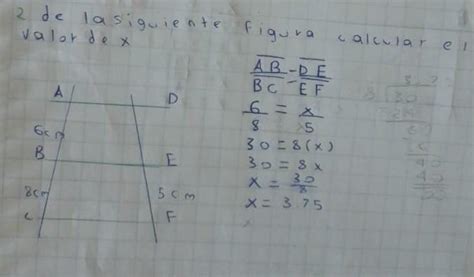 2. de la siguiente figura calcular el
valor de x
A D
6cm
B E
8cm 5cm
C F
AB = DE
BC EF
6 = x
8 5
30 = 8(x)
30 = 8x
x = 30
8
x = 3.75
8 30